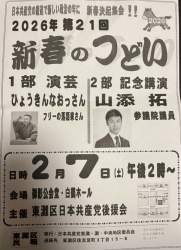 日本共産党の躍進で新しい政治の年に 新春決起集会!!
2026年第21回
新春のつどい
1部 演芸
ひょうきんなおっさん
フリーの落語家さん
2部 記念講演
山添 拓
参議院議員
日時 2月7日(土)午後2時~
会場 御影公会堂・白鶴ホール
主催 東灘区日本共産党後援会